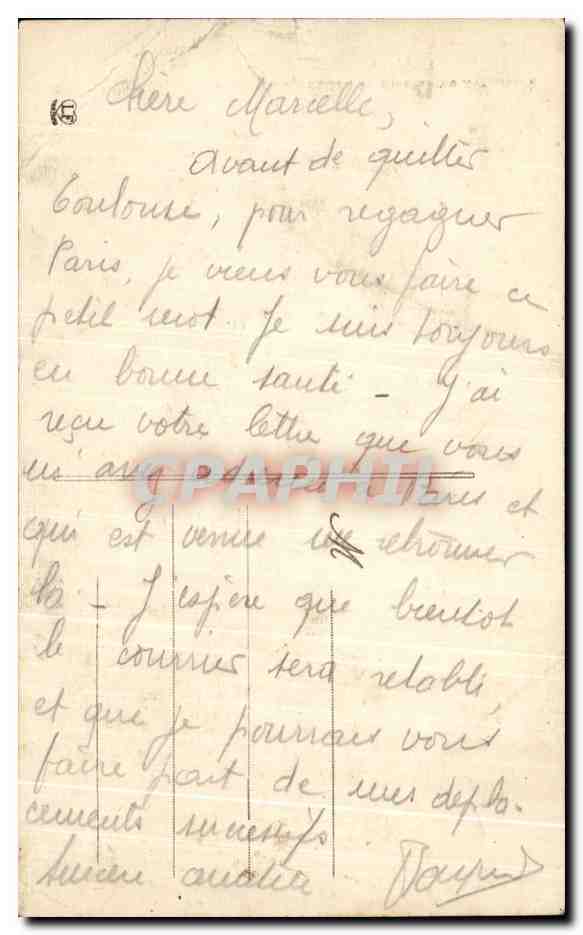 Chère Marcelle,
avant de quitter
Toulouse, pour regagner
Paris, je viens vous faire ce
petit mot. Je suis toujours
en bonne santé - J'ai
reçu votre lettre que vous
m'avez à Paris et
CPARAMA
qui est venue me retrouver
M
là - J'espère que bientôt
le courrier sera rétabli,
et que je pourrais vous
faire part de mes dépla-
cements successifs
Sincère amitié